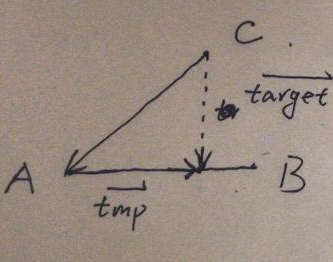 C
target
A
B
tmp